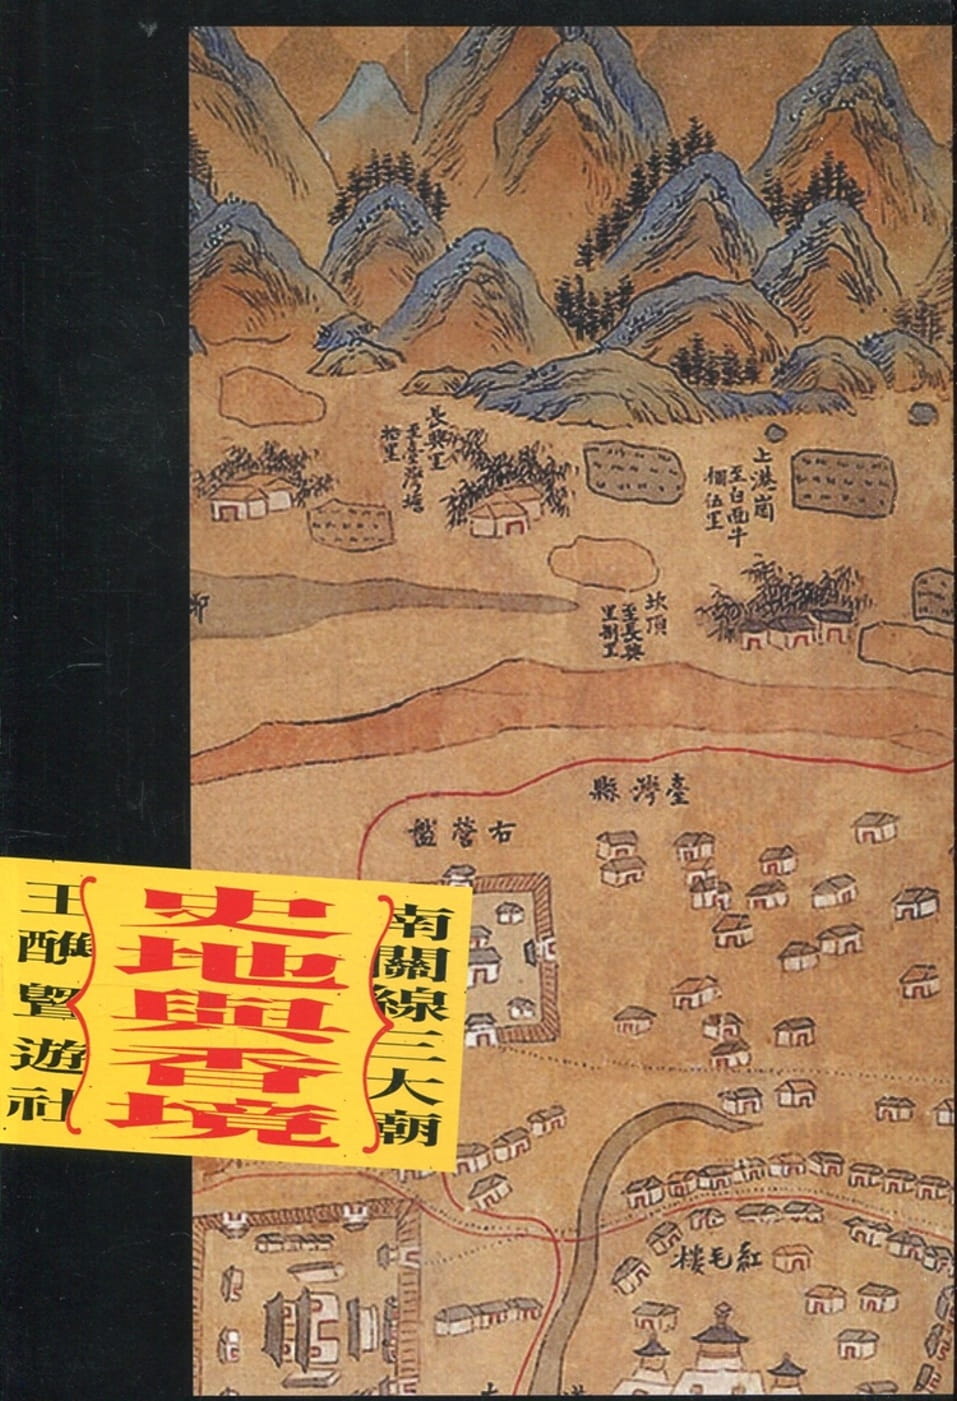 長興里
至臺灣墙
拾里
上港崗
至白面牛
椆伍里
坎頂
至長興
里捌里
臺灣縣
右營盤
南關線三大朝
史地與香境
王醮暨遊社
紅毛樓